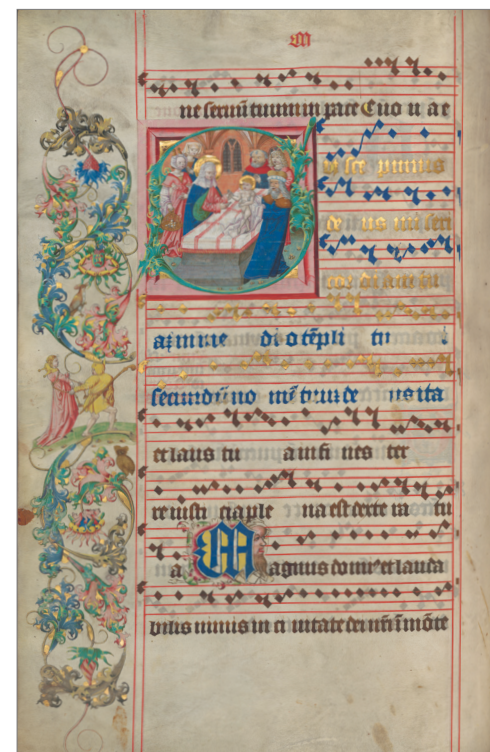 M
ne seruū tuum in pace Euo u ae
us ce pimus
de us mi seri
cor di am tu
a in me di o tēpli tu i
secundū no mē tuum de us ita
et laus tu a in fi nes ter
re iusti cia ple na est dexte ra tu
a Magnus domi⁹ et lauda
bilis nimis in ci uitate dei nr̄i ī mōte